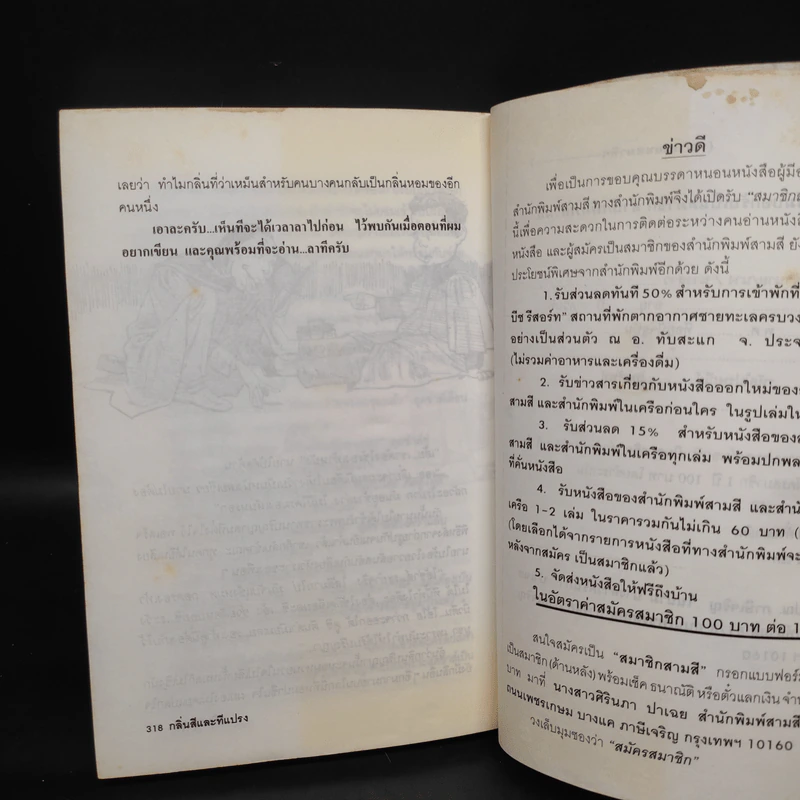 เลยว่า ทำไมกลิ่นที่ว่าเหม็นสำหรับคนบางคนกลับเป็นกลิ่นหอมของอีก
คนหนึ่ง
เอาละครับ...เห็นทีจะได้เวลาลาไปก่อน ไว้พบกันเมื่อตอนที่ผม
อยากเขียน และคุณพร้อมที่จะอ่าน...ลาทีครับ
318 กลิ่นสีและทีแปรง
ข่าวดี
เพื่อเป็นการขอบคุณบรรดาหนอนหนังสือผู้มีอ
สำนักพิมพ์สามสี ทางสำนักพิมพ์จึงได้เปิดรับ "สมาชิก
นี้เพื่อความสะดวกในการติดต่อระหว่างคนอ่านหนัง
หนังสือ และผู้สมัครเป็นสมาชิกของสำนักพิมพ์สามสี ยัง
ประโยชน์พิเศษจากสำนักพิมพ์อีกด้วย ดังนี้
1.รับส่วนลดทันที 50% สำหรับการเข้าพักที่
บีช รีสอร์ท" สถานที่พักตากอากาศชายทะเลครบวง
อย่างเป็นส่วนตัว ณ อ. ทับสะแก จ. ประจ
(ไม่รวมค่าอาหารและเครื่องดื่ม)
2. รับข่าวสารเกี่ยวกับหนังสือออกใหม่ของ
สามสี และสำนักพิมพ์ในเครือก่อนใคร ในรูปเล่มใน
3. รับส่วนลด 15% สำหรับหนังสือของ
สามสี และสำนักพิมพ์ในเครือทุกเล่ม พร้อมปกพล
ที่คั่นหนังสือ
4. รับหนังสือของสำนักพิมพ์สามสี และสำนั
เครือ 1-2 เล่ม ในราคารวมกันไม่เกิน 60 บาท (
(โดยเลือกได้จากรายการหนังสือที่ทางสำนักพิมพ์จะ
หลังจากสมัคร เป็นสมาชิกแล้ว)
5. จัดส่งหนังสือให้ฟรีถึงบ้าน
ในอัตราค่าสมัครสมาชิก 100 บาท ต่อ 1
สนใจสมัครเป็น "สมาชิกสามสี" กรอกแบบฟอร์ม
เป็นสมาชิก (ด้านหลัง) พร้อมเช็ค ธนาณัติ หรือตั๋วแลกเงิน จำน
บาท มาที่ นางสาวศิรินภา ปาเฉย สำนักพิมพ์สามสี
ถนนเพชรเกษม บางแค ภาษีเจริญ กรุงเทพฯ 10160
วงเล็บมุมซองว่า "สมัครสมาชิก"